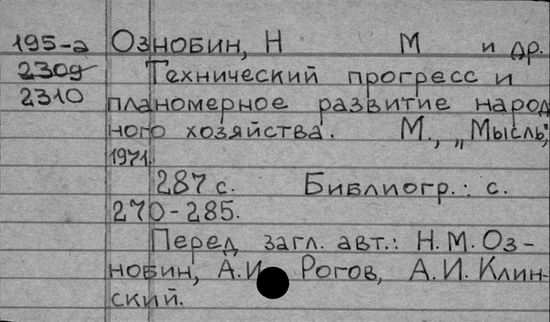 195-а Ознобин, Н М и др.
2309 Технический прогресс и
2310 планомерное развитие народ
ного хозяйства. М., „Мысль",
1971.
287 с. Библиогр.: с.
270-285.
Перед загл. авт.: Н.М.Оз-
нобин, А.И. Рогов, А.И.Клин-
ский.